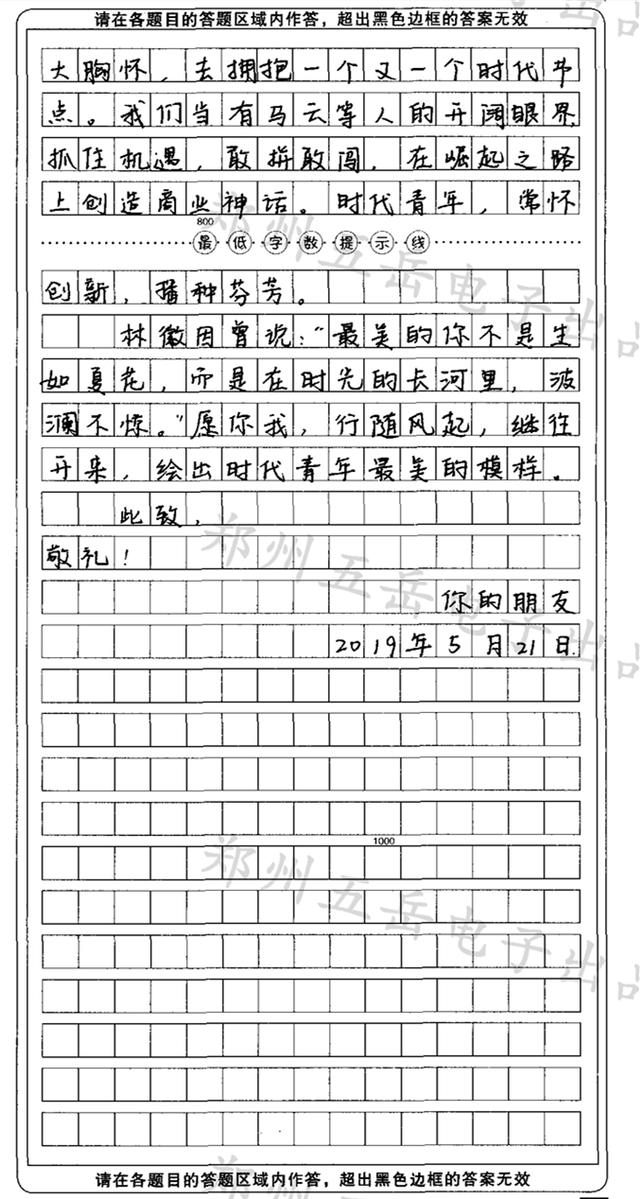 请在各题目的答题区域内作答，超出黑色边框的答案无效
大胸怀，去拥抱一个又一个时代节
点。我们当有马云等人的开阔眼界
抓住机遇，敢拼敢闯，在崛起之路
上创造商业神话。时代青年，常怀
800
最低字数提示线
创新，播种芬芳。
林徽因曾说：“最美的你不是生
如夏花，而是在时光的长河里，波
澜不惊。”愿你我，行随风起，继往
开来，绘出时代青年最美的模样。
此致，
敬礼！
你的朋友
2019年5月21日
1000
请在各题目的答题区域内作答，超出黑色边框的答案无效
郑州五岳电子出品
郑州五岳电子出品
郑州五岳电子出品